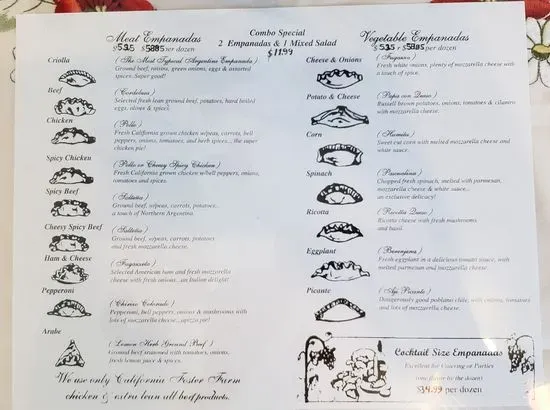 Meat Empanadas
$5.25 / $58.85 per dozen
Combo Special
2 Empanadas & 1 Mixed Salad
$11.99
Vegetable Empanadas
$5.25 / $58.85 per dozen
Criolla
( The Most Typical Argentine Empanada )
Ground beef, raisins, green onions, eggs & assorted
spices. Super good!
Beef
( Cordobesa )
Selected fresh lean ground beef, potatoes, hard boiled
eggs, olives & spices.
Chicken
( Pollo )
Fresh California grown chicken w/peas, carrots, bell
peppers, onions, tomatoes, and herb spices...the super
chicken pie!
Spicy Chicken
( Pollo or Cheesy Spicy Chicken )
Fresh California grown chicken w/bell peppers, onions,
tomatoes and spices.
Spicy Beef
( Salteña )
Ground beef, w/peas, carrots, potatoes..
a touch of Northern Argentina.
Cheesy Spicy Beef
( Salteña )
Ground beef, w/peas, carrots, potatoes
and fresh mozzarella cheese.
Ham & Cheese
( Fugazzeta )
Selected American ham and fresh mozzarella
cheese with fresh onions...an Italian delight!
Pepperoni
( Chirizo Colorado )
Pepperoni, bell peppers, onions & mushrooms with
lots of mozzarella cheese...
Arabe
( Lemon Herb Ground Beef )
Ground beef seasoned with tomatoes, onions,
fresh lemon juice & spices.
We use only California Foster Farm
chicken & extra lean all beef products.
Cheese & Onions
( Fugazza )
Fresh white onions, plenty of mozzarella cheese with
a touch of spice.
Potato & Cheese
( Papa con Queso )
Russell brown potatoes, onions, tomatoes & cilantro
with mozzarella cheese.
Corn
( Humita )
Sweet cut corn with melted mozzarella cheese and
white sauce.
Spinach
( Pascualina )
Chopped fresh spinach, melted with parmesan,
mozzarella cheese & white sauce..
an exclusive delicacy!
Ricotta
( Ricotta Queso )
Ricotta cheese with fresh mushrooms
and basil.
Eggplant
( Berenjena )
Fresh eggplant in a delicious tomato sauce, with
melted parmesan and mozzarella cheese.
Picante
( Aji Picante )
Dangerously good poblano chile, with onions, tomatoes
and lots of mozzarella cheese.
Cocktail Size Empanadas
Excellent for Catering or Parties
(one flavor by the dozen)
$34.99 per dozen